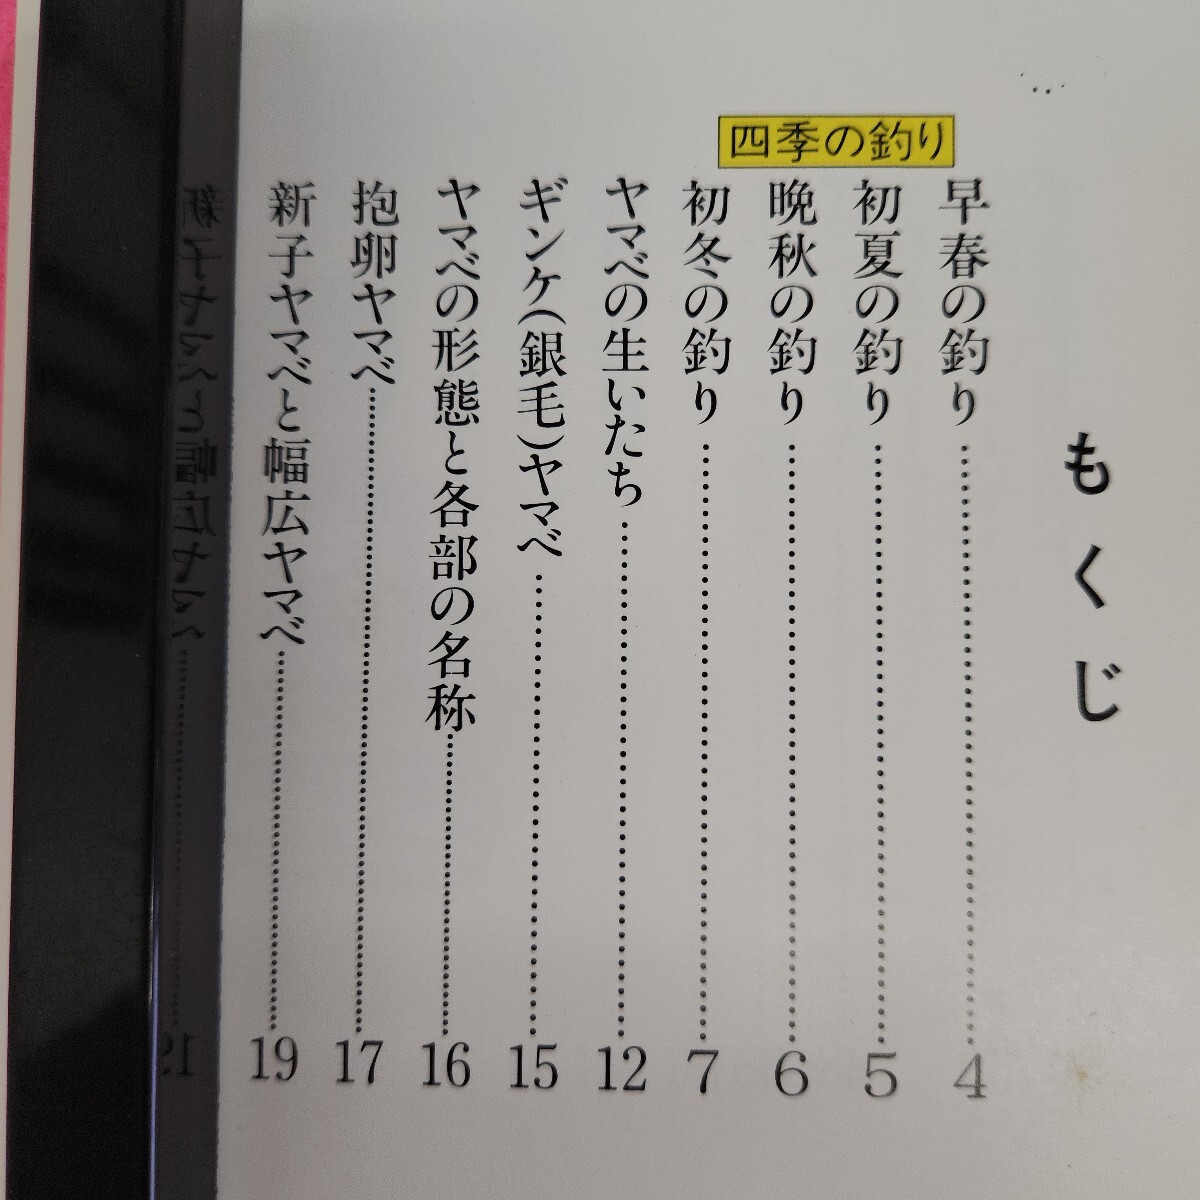 もくじ
四季の釣り
早春の釣り……4
初夏の釣り……5
晩秋の釣り……6
初冬の釣り……7
ヤマベの生いたち……12
ギンケ(銀毛)ヤマベ……15
ヤマベの形態と各部の名称……16
抱卵ヤマベ……17
新子ヤマベと幅広ヤマベ……19